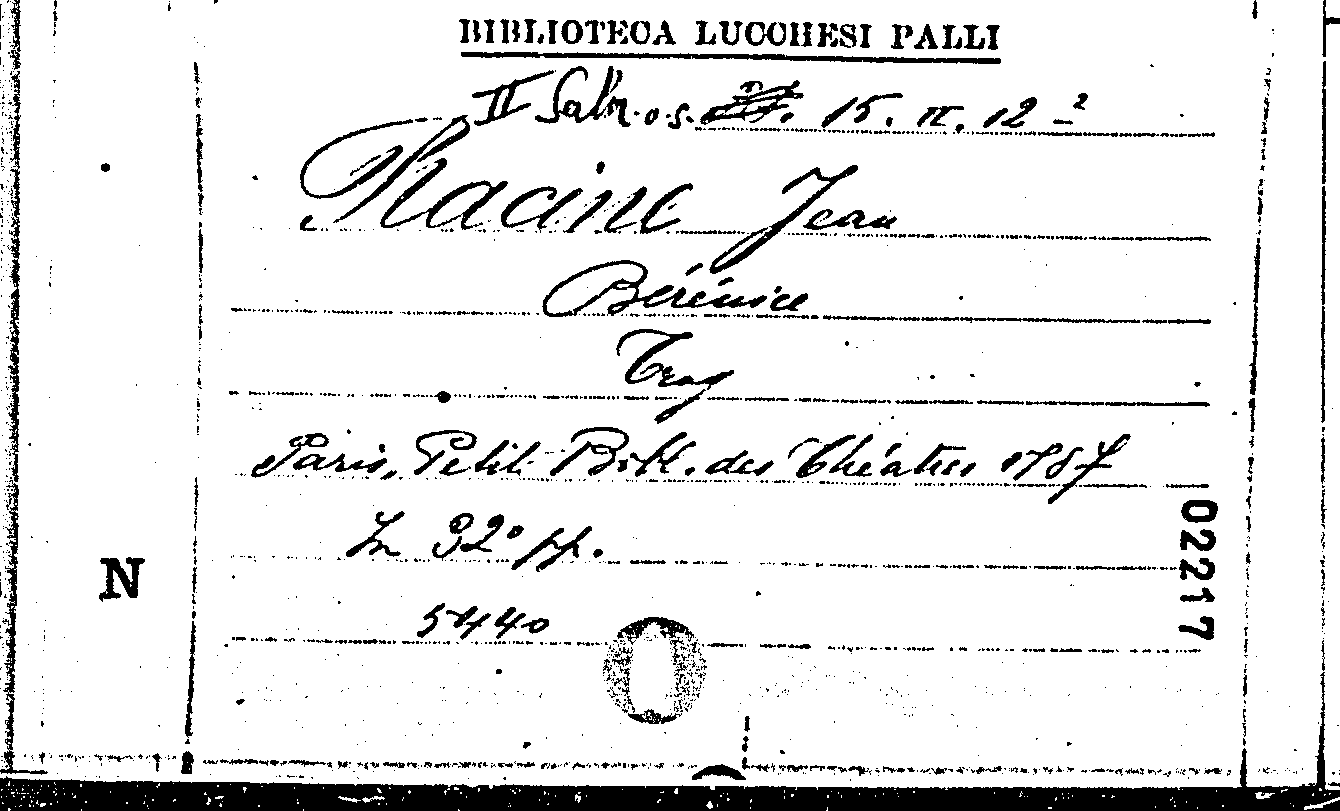 BIBLIOTECA LUCCHESI PALLI
II Sala. o.s. 15. II. 12 2
Racine Jean
Bérénice
Trag
Paris, Petit Bibl. des Théatres 1787
In 32° pp.
5440
N
02217